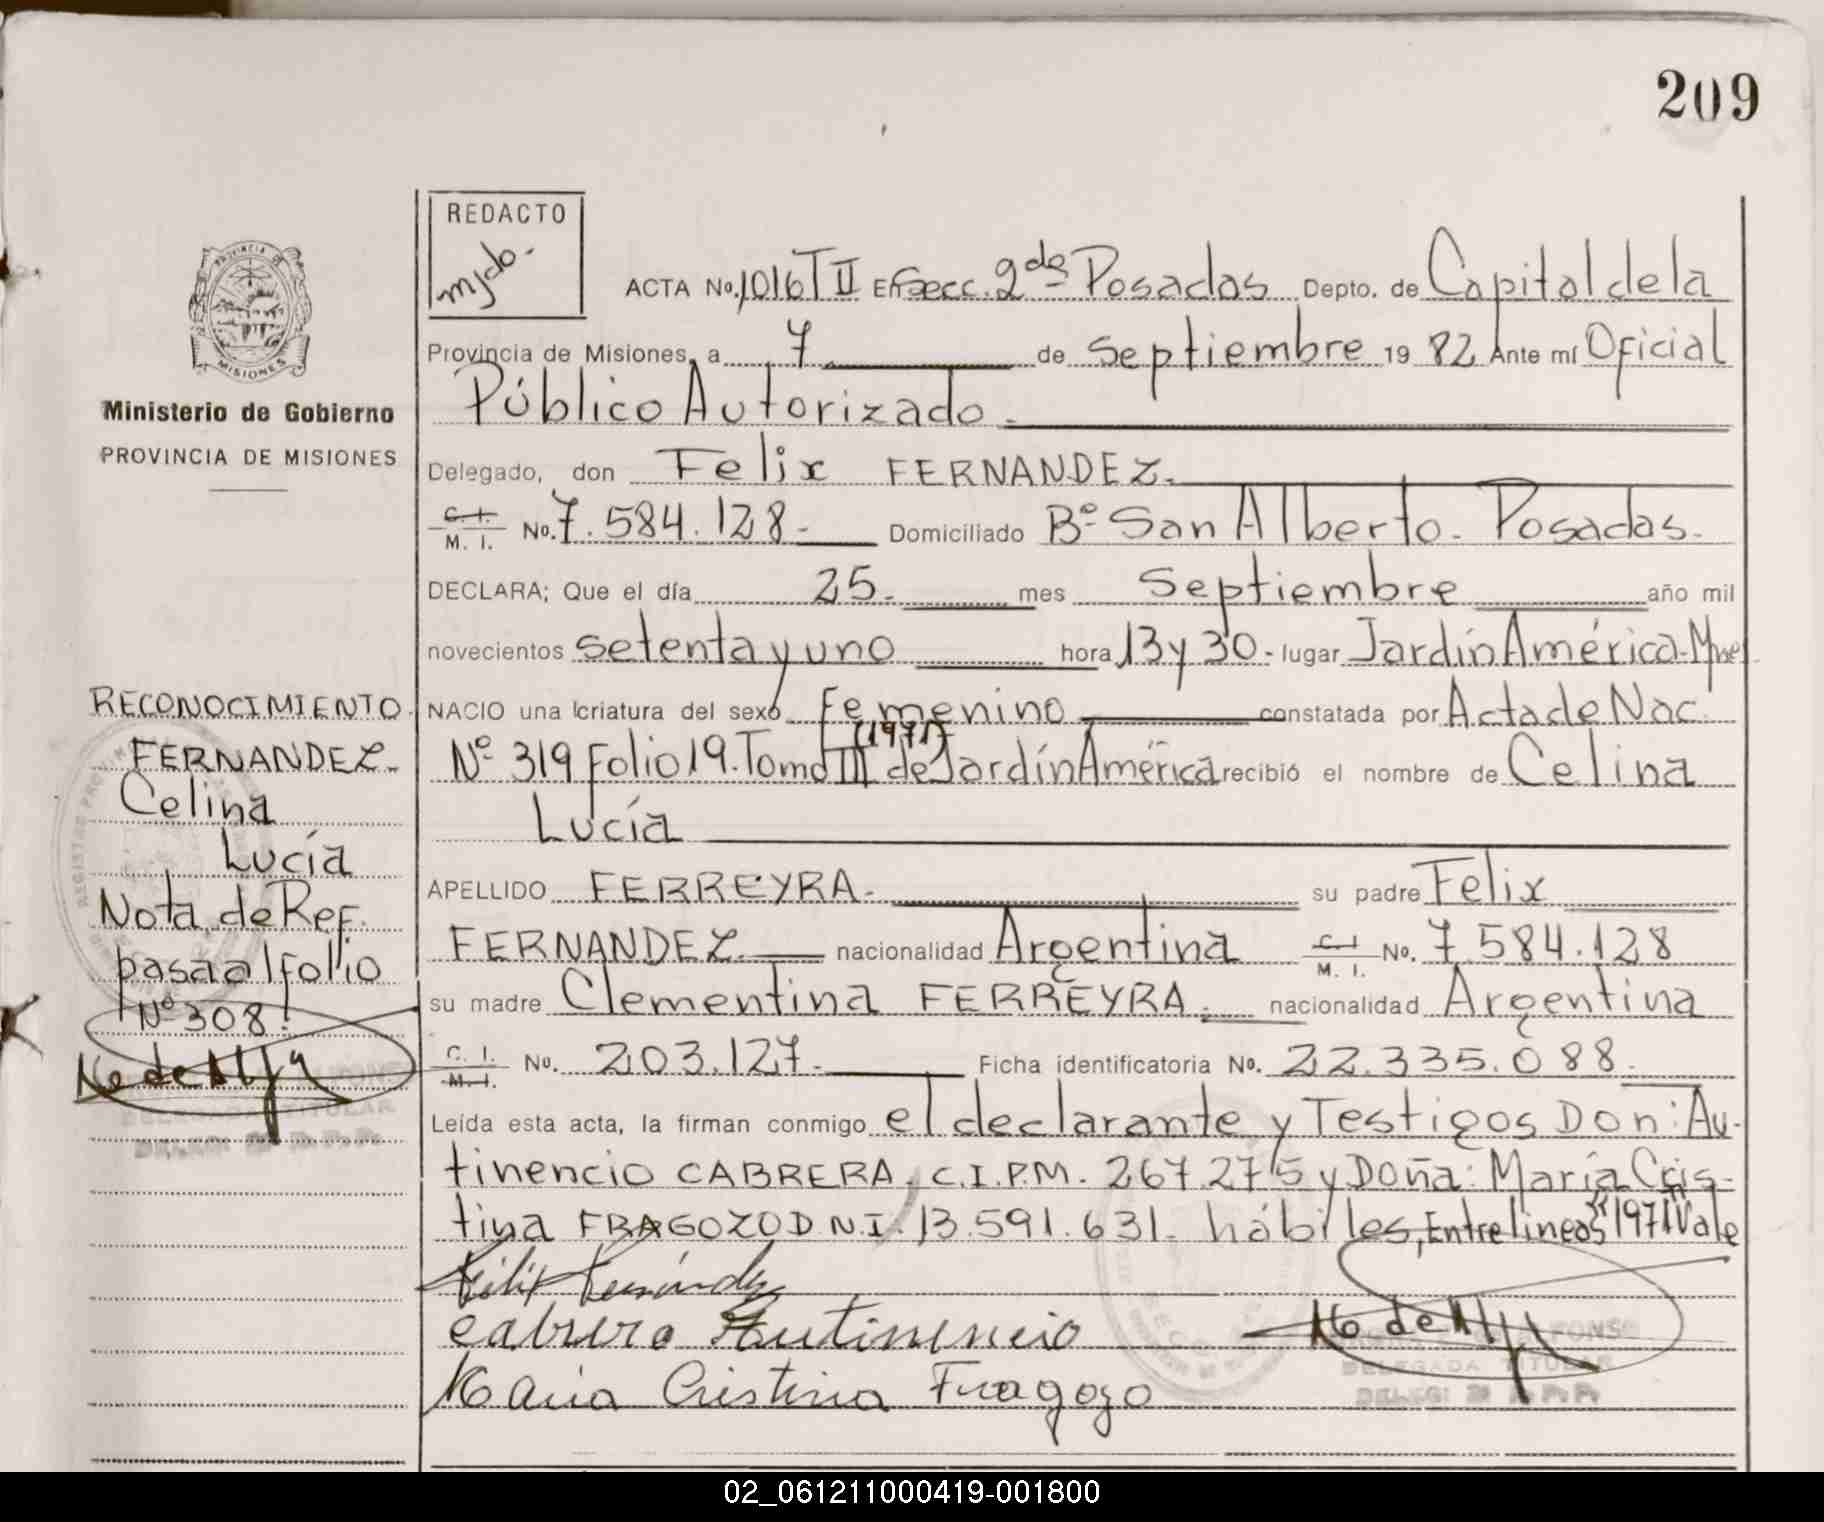 209
REDACTO
ACTA No. 1016 T II Secc. 2da Posadas Depto. de Capital de la
Provincia de Misiones, a 7 de Septiembre 19 82 Ante mí Oficial
Público Autorizado.
Delegado, don Felix FERNANDEZ.
C. I. M. I. No. 7.584.128- Domiciliado Bº San Alberto. Posadas.
DECLARA; Que el día 25. mes Septiembre año mil
novecientos setenta y uno hora 13 y 30- lugar Jardín América. Mnes
NACIO una criatura del sexo Femenino constatada por Acta de Nac.
(1971)
Nº 319 Folio 19. Tomo III de Jardín América recibió el nombre de Celina
Lucía
APELLIDO FERREYRA. su padre Felix
FERNANDEZ. nacionalidad Argentina C. I. M. I. No. 7.584.128
su madre Clementina FERREYRA. nacionalidad Argentina
C. I. M. I. No. 203.127. Ficha identificatoria No. 22.335.088.
Leída esta acta, la firman conmigo el declarante y Testigos Don: Au-
tinencio CABRERA, C.I.P.M. 267.275 y Doña: María Cris-
tina FRAGOZO D.N.I. 13.591.631. hábiles, Entre lineas "1971" Vale
Felix Fernández
Cabrera Autinencio
Maria Cristina Fragozo
DELEGADA TITULAR
PROVINCIA
MISIONES
Ministerio de Gobierno
PROVINCIA DE MISIONES
RECONOCIMIENTO.
FERNANDEZ.
Celina
Lucía
Nota de Ref.
pasa al folio
Nº 308.
DELEGADA TITULAR
02_061211000419-001800